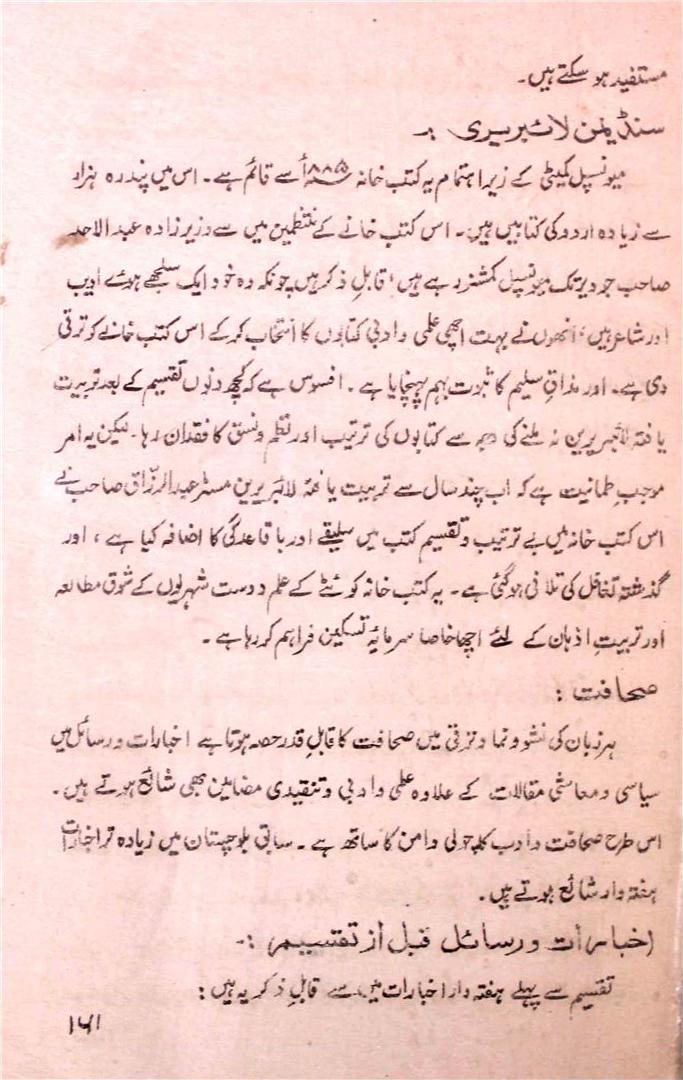 مستفید ہو سکتے ہیں۔
سنڈیمن لائبریری :۔
میونسپل کمیٹی کے زیر اہتمام یہ کتب خانہ ۱۸۸۵ء سے قائم ہے۔ اس میں پندرہ ہزار
سے زیادہ اردو کی کتابیں ہیں۔ اس کتب خانے کے منتظمین میں سے وزیر زادہ عبد الاحد
صاحب جو دیر تک میونسپل کمشنر رہے ہیں، قابلِ ذکر ہیں چونکہ وہ خود ایک سلجھے ہوئے ادیب
اور شاعر ہیں، انھوں نے بہت اچھی علمی و ادبی کتابوں کا انتخاب کر کے اس کتب خانے کو ترقی
دی ہے۔ اور مذاقِ سلیم کا ثبوت بہم پہنچایا ہے۔ افسوس ہے کہ کچھ دنوں تقسیم کے بعد تربیت
یافتہ لائبریرین نہ ملنے کی وجہ سے کتابوں کی ترتیب اور نظم و نسق کا فقدان رہا۔ لیکن یہ امر
موجبِ طمانیت ہے کہ اب چند سال سے تربیت یافتہ لائبریرین مسٹر عبدالرزّاق صاحب نے
اس کتب خانہ میں بے ترتیب و تقسیم کتب میں سلیقے اور باقاعدگی کا اضافہ کیا ہے، اور
گذشتہ تغافل کی تلافی ہو گئی ہے۔ یہ کتب خانہ کوئٹے کے علم دوست شہریوں کے شوق مطالعہ
اور تربیتِ اذہان کے لئے اچھا خاصا سرمایۂ تسکین فراہم کر رہا ہے۔
صحافت :
ہر زبان کی نشو و نما و ترقی میں صحافت کا قابلِ قدر حصہ ہوتا ہے اخبارات و رسائل میں
سیاسی و معاشی مقالات کے علاوہ علمی و ادبی و تنقیدی مضامین بھی شائع ہوتے ہیں۔
اس طرح صحافت و ادب کا چولی دامن کا ساتھ ہے۔ سابق بلوچستان میں زیادہ تر اخبارات
ہفتہ وار شائع ہوتے ہیں۔
اخبارات و رسائل قبل از تقسیم :۔
تقسیم سے پہلے ہفتہ وار اخبارات میں سے قابلِ ذکر یہ ہیں :
۱۶۱